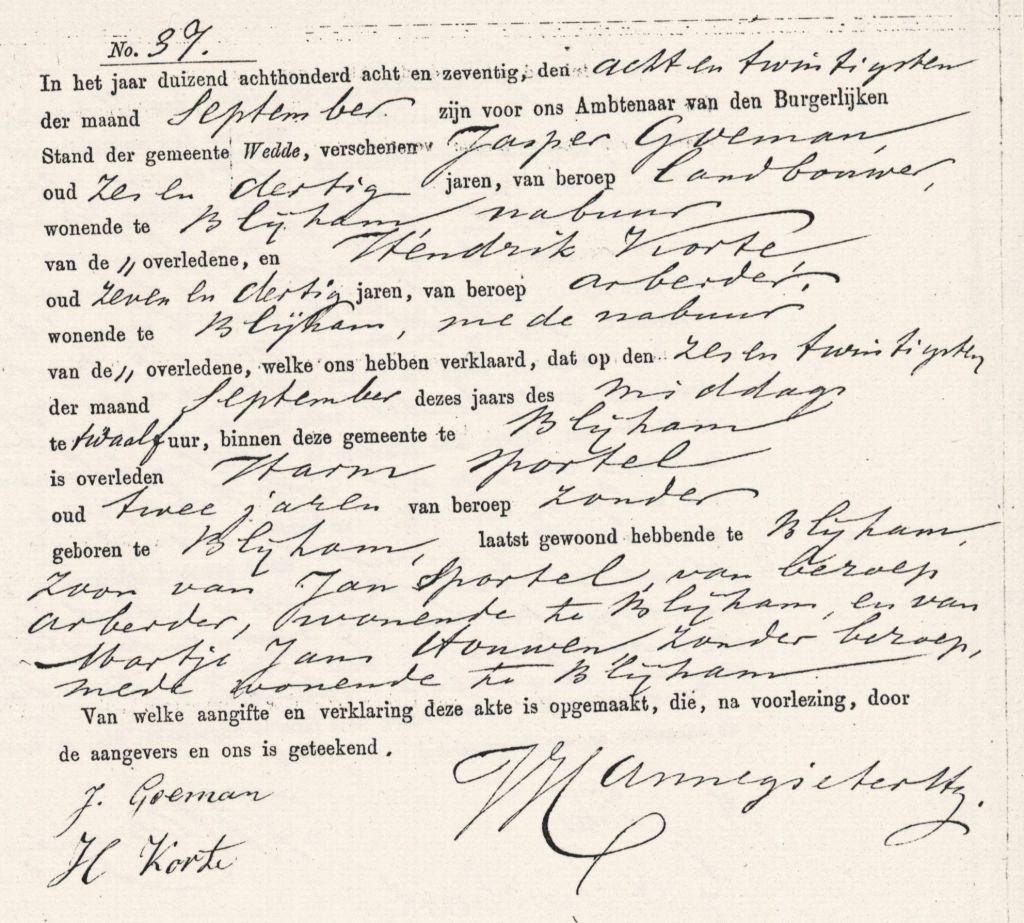 No. 37.
In het jaar duizend achthonderd acht en zeventig, den acht en twintigsten
der maand September zijn voor ons Ambtenaar van den Burgerlijken
Stand der gemeente Wedde, verschenen Jasper Goeman,
oud zes en dertig jaren, van beroep landbouwer,
wonende te Blijham nabuur
van de „ overledene, en Hendrik Korte,
oud zeven en dertig jaren, van beroep arbeider,
wonende te Blijham, mede nabuur
van de „ overledene, welke ons hebben verklaard, dat op den zes en twintigsten
der maand September dezes jaars des middags
te twaalf uur, binnen deze gemeente te Blijham
is overleden Harm Sportel
oud twee jaren van beroep zonder
geboren te Blijham, laatst gewoond hebbende te Blijham,
zoon van Jan Sportel, van beroep
arbeider, wonende te Blijham, en van
Martje Jans Houwen, zonder beroep,
mede wonende te Blijham
Van welke aangifte en verklaring deze akte is opgemaakt, die, na voorlezing, door
de aangevers en ons is geteekend.
J. Goeman
H Korte